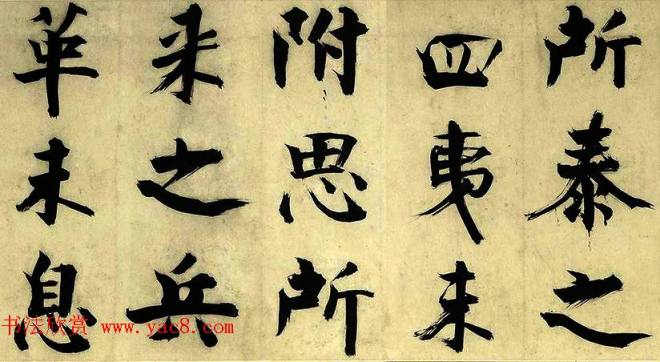 所泰之
四夷未
附思所
来之兵
革未息
书法欣赏 www.yac8.com